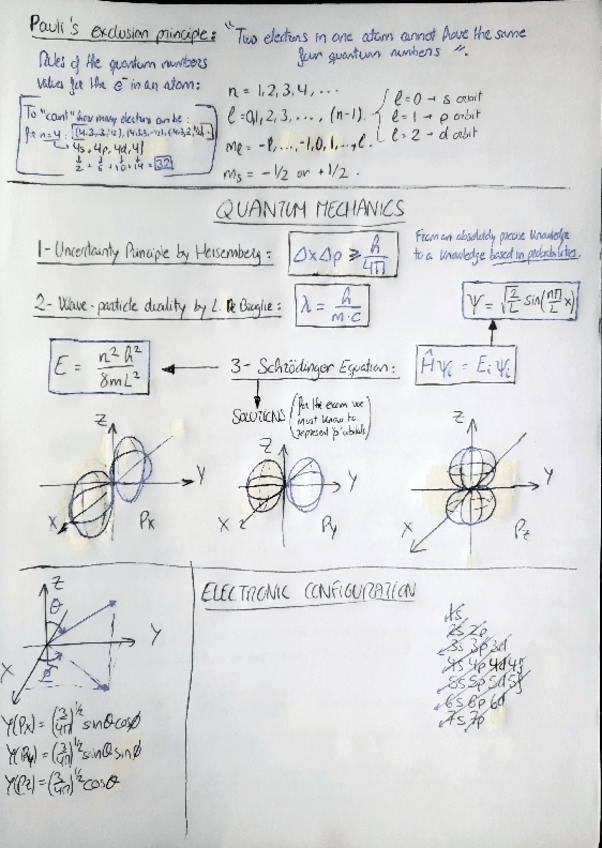 Pauli's exclusion principle: "Two electrons in one atom cannot have the same
four quantum numbers".
Rules of the quantum numbers
values for the e⁻ in an atom:
n = 1, 2, 3, 4, ...
l = 0, 1, 2, 3, ..., (n-1)
l = 0 → s orbit
l = 1 → p orbit
l = 2 → d orbit
ml = -l, ..., -1, 0, 1, ..., l.
ms = -1/2 or +1/2.
To "cant" how many electrons can be:
for n=4:
4s, 4p, 4d, 4f
2 + 6 + 10 + 14 = 32
QUANTUM MECHANICS
1- Uncertainty Principle by Heisemberg: Δx Δp ≥ h/4π
From an absolutely precise knowledge
to a knowledge based in probabilities.
2- Wave-particle duality by L. De Broglie: λ = h/m·c
Ψ = √(2/L) sin(nπ/L x)
E = n²h²/8mL²
3- Schrödinger Equation:
Ĥψi = Eiψi
SOLUTIONS (For the exam we
must know to
represent 'p' orbitals)
Z Y X Px
Z Y X Py
Z Y X Pz
Z θ Y X φ
Y(Px) = (3/4π)^1/2 sinθcosφ
Y(Py) = (3/4π)^1/2 sinθ sinφ
Y(Pz) = (3/4π)^1/2 cosθ
ELECTRONIC CONFIGURATION
1s
2s 2p
3s 3p 3d
4s 4p 4d 4f
5s 5p 5d 5f
6s 6p 6d
7s 7p